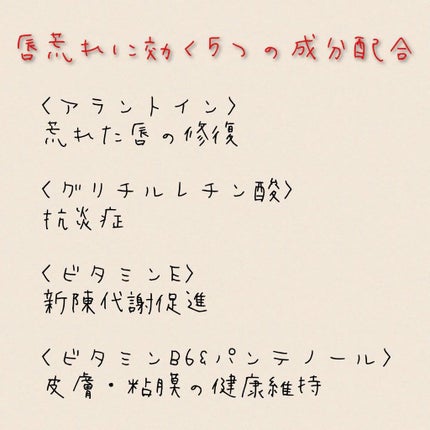 唇荒れに効く5つの成分配合
〈アラントイン〉
荒れた唇の修復
〈グリチルレチン酸〉
抗炎症
〈ビタミンE〉
新陳代謝促進
〈ビタミンB6&パンテノール〉
皮膚・粘膜の健康維持